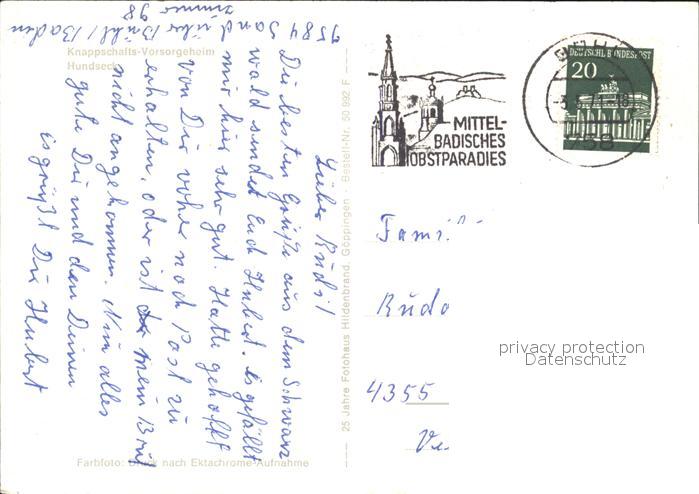 zimmer 98
7584 Sand über Bühl/Baden
Knappschafts-Vorsorgeheim
Hundseck
Lieber Rudi!
Die besten Grüße aus dem Schwarz
wald sendet Euch Hubert. es gefällt
mir hier sehr gut. Hatte gehofft
von Dir vorher noch Post zu
erhalten, oder ist mein Brief
nicht angekommen. Nun alles
gute Dir und den Deinen
es grüßt Dir Hubert
Farbfoto: Druck nach Ektachrome-Aufnahme
25 Jahre Fotohaus Hildenbrand, Göppingen Bestell-Nr. 50 992 F
MITTEL-
BADISCHES
OBSTPARADIES
DEUTSCHE BUNDESPOST
20
758
Fami
Rudo
privacy protection
Datenschutz
4355